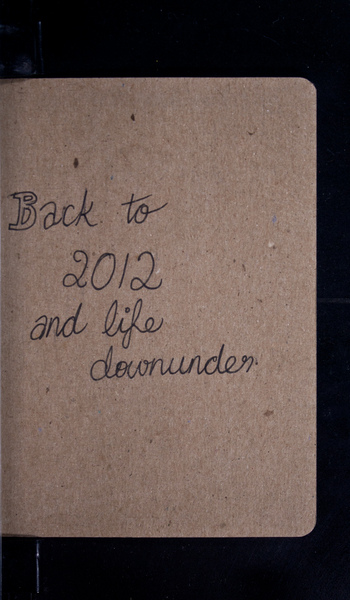 Back to
2012
and life
downunder.